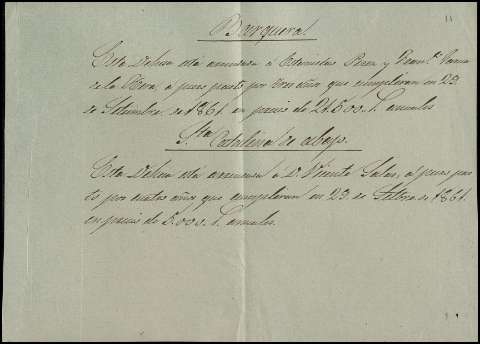 11
Barqueral
Esta Dehesa está arrendada á Estanislao Perez y
de la Mora, a puro pasto por tres años que cumplirán en 29
de Setiembre de 1861. en precio de 21.500. r. anuales
Sta Catalina de abajo.
Esta Dehesa está arrendada á D. Vicente Salas, a puro pas
to por cuatro años que cumplirán en 29. de Setbre de 1861.
en precio de 5.000. r. anuales.